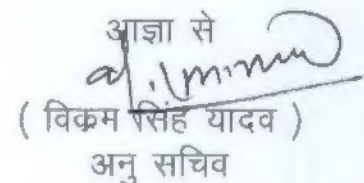 आज्ञा से
( विक्रम सिंह यादव )
अनु सचिव